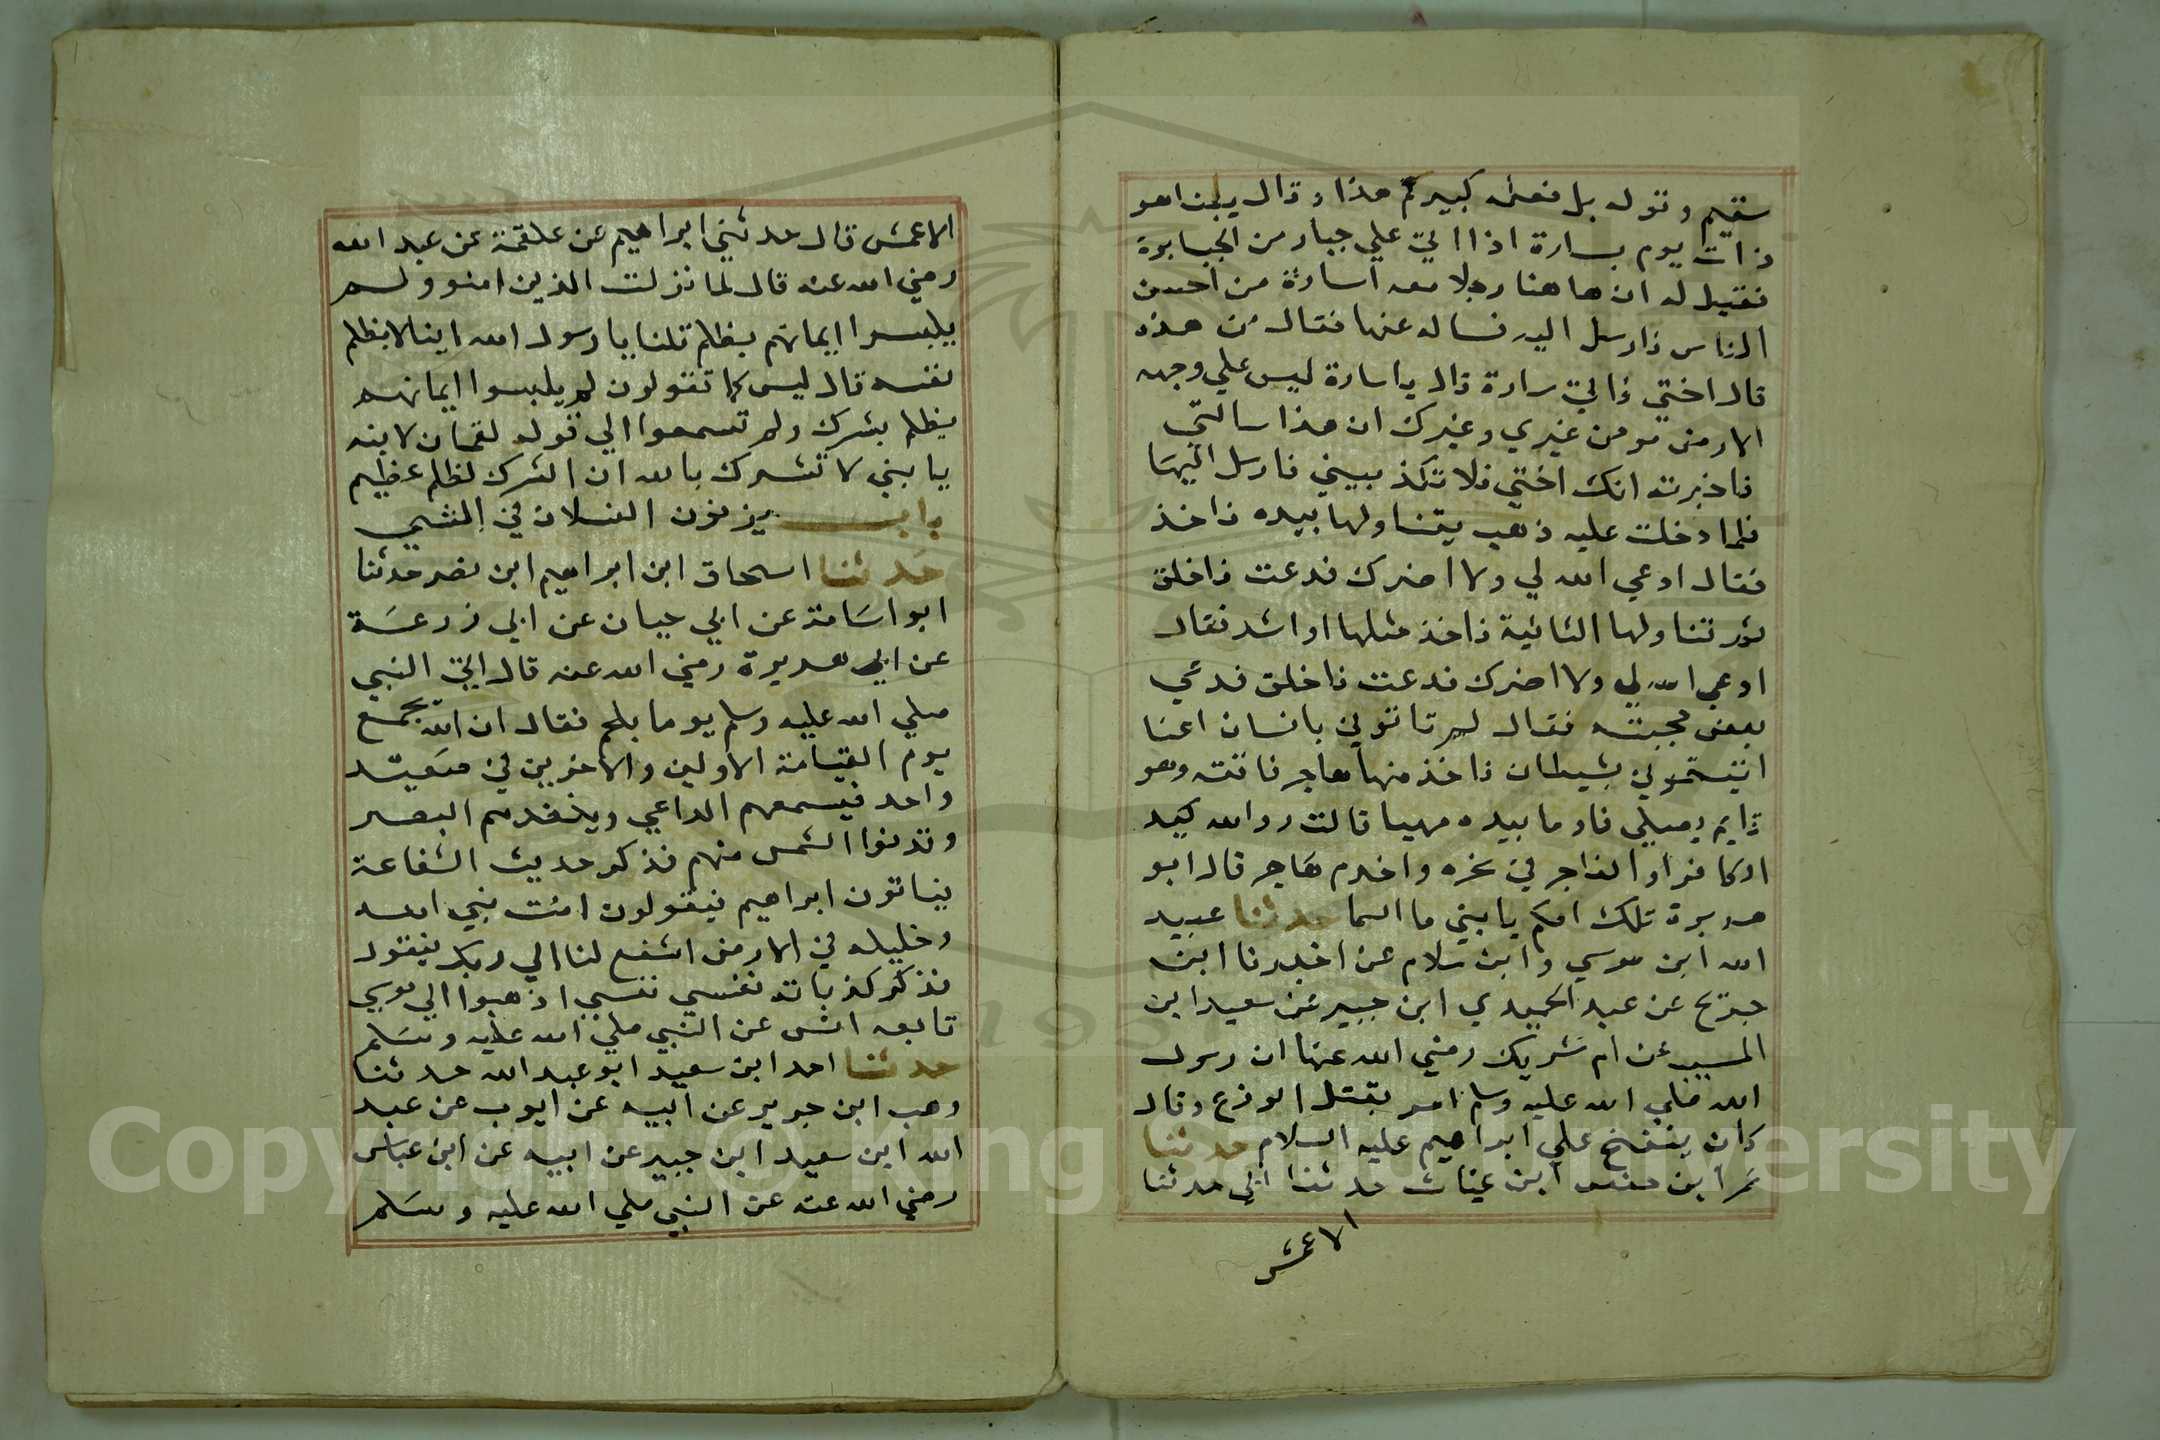 سقيم وقوله بل فعله كبيرهم هذا وقال بينا هو
ذات يوم بسارة اذا اتي علي جبار من الجبابرة
فقيل له ان هاهنا رجلا معه اسارة من احسن
الناس فارسل اليه فساله عنها فقال من هذه
قال اختي فاتي سارة قال يا سارة ليس علي وجه
الارض مومن غيري وغيرك ان هذا سالتي
فاخبرته انك اختي فلا تكذبيني فارسل اليها
فلما دخلت عليه ذهب يتناولها بيده فاخذ
فقال ادعي الله لي ولا اضرك فدعت فاطلق
ثم تناولها الثانية فاخذ مثلها او اشد فقال
ادعي الله لي ولا اضرك فدعت فاطلق فدعي
بعض حجبته فقال لم تاتوني بانسان انما
اتيتموني بشيطان فاخذ منها هاجر فاتته وهو
قايم يصلي فاوما بيده مهيا قالت رد الله كيد
الكافر او الفاجر في نحره واخدم هاجر قال ابو
هريرة تلك امكم يا بني ما السما حدثنا عبيد
الله ابن موسي وابن سلام عن اخبرنا ابن
جريج عن عبد الحميدي ابن جبير عن سعيد ابن
المسيب عن ام شريك رضي الله عنها ان رسول
الله صلي الله عليه وسلم امر بقتل الوزغ وقال
كان ينفخ علي ابراهيم عليه السلام حدثنا
عمر ابن حفص ابن غياث حدثنا ابي حدثنا
الاعمش
الاعمش قال حدثني ابراهيم عن علقمة عن عبد الله
رضي الله عنه قال لما نزلت الذين امنو ولم
يلبسوا ايمانهم بظلم قلنا يا رسول الله اينا لا يظلم
نفسه قال ليس كما تقولون لم يلبسوا ايمانهم
بظلم بشرك ولم تسمعوا الي قوله لقمان لابنه
يا بني لا تشرك بالله ان الشرك لظلم عظيم
باب يزفون النسلان في المشي
حدثنا اسحاق ابن ابراهيم ابن نصر حدثنا
ابو اسامة عن ابي حيان عن ابي زرعة
عن ابي هريرة رضي الله عنه قال اتي النبي
صلي الله عليه وسلم يوما بلحم فقال ان الله يجمع
يوم القيامة الاولين والاخرين في صعيد
واحد فيسمعهم الداعي وينفذهم البصر
وتدنوا الشمس منهم فذكر حديث الشفاعة
فياتون ابراهيم فيقولون انت نبي الله
وخليله في الارض اشفع لنا الي ربك فيقول
فذكر كذباته نفسي نفسي اذهبوا الي موسي
تابعه انس عن النبي صلي الله عليه وسلم
حدثنا احمد ابن سعيد ابو عبد الله حدثنا
وهب ابن جرير عن ابيه عن ايوب عن عبد
الله ابن سعيد ابن جبير عن ابيه عن ابن عباس
رضي الله عنه عن النبي صلي الله عليه وسلم
Copyright © King Saud University